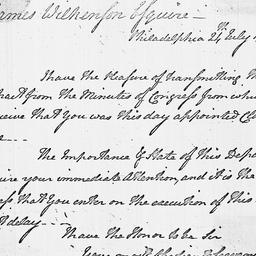 ames Wilkenson Esquire —
Philadelphia 24th July
I have the Pleasure of transmitting
ract from the Minutes of Congress from whi
ceive that You was this day appointed Cl
The Importance & State of this Depa
uire your immediate Attention, and it is the
ess, that You enter on the execution of this
t delay
I have the Honor to be Sir